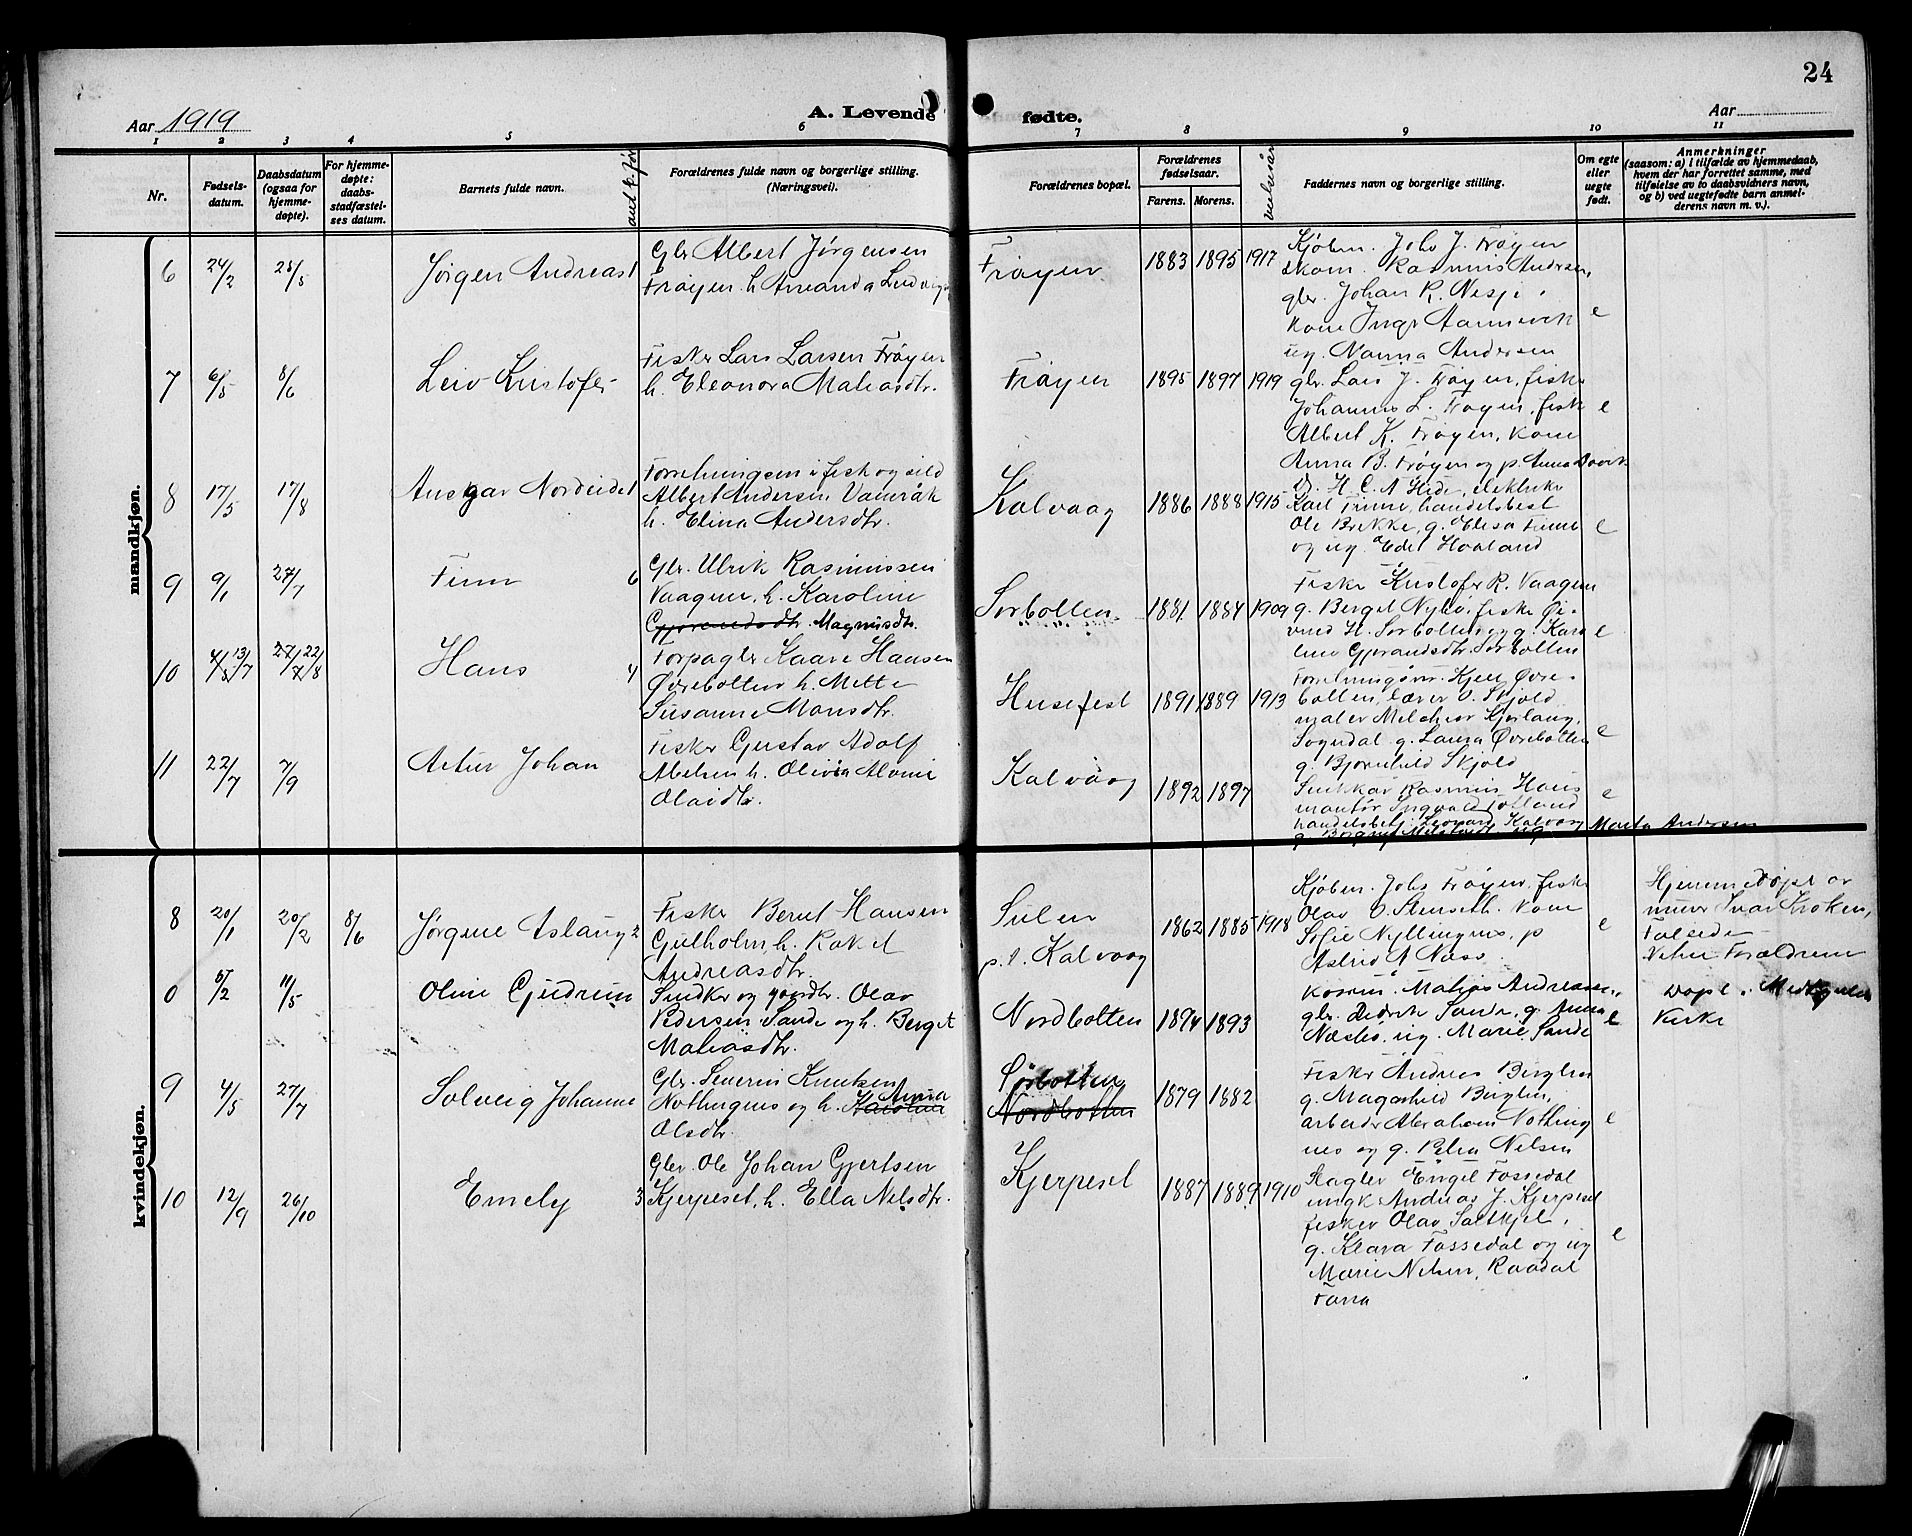 24
Aar 1919
A. Levende fødte.
Aar
1 2 3 4 5 6 7 8 9 10 11
Nr.
Fødsels-
datum.
Daabsdatum
(ogsaa for
hjemme-
døpte).
For hjemme-
døpte:
daabs-
stadfæstel-
ses datum.
Barnets fulde navn.
Forældrenes fulde navn og borgerlige stilling.
(Næringsvei).
Forældrenes bopæl.
Forældrenes
fødselsaar.
Farens. Morens.
Faddernes navn og borgerlige stilling.
Om egte
eller
uegte
født.
Anmerkninger
(saasom: a) i tilfælde av hjemmedaab,
hvem der har forrettet samme, med
tilføielse av to daabsvidners navn,
og b) ved uegtefødte barn anmel-
derens navn m. v.).
mandkjøn.
6 24/2 25/5 Jørgen Andreas 1
Gbr. Albert Jørgensen
Frøyen h. Amanda
Frøyen 1883 1895 1917
Kjøbm. Johs J. Frøyen
skom. Rasmus Andersen,
gbr. Johan R. Nesje,
kone Inga
ug. Nanna Andersen
e
7 6/5 8/6 Leiv Kristofer
Fisker Lars Larsen Frøyen
h. Eleonora Matiasdtr.
Frøyen 1895 1897 1919
gbr. Lars J. Frøyen, fisker
Johannes L. Frøyen, fisk
Albert K. Frøyen, kone
Anna B. Frøyen og p. Anna
e
8 17/5 17/8 Ansgar Nordeide 1
Forretningsm i fisk og sild
Albert Andersen
h. Elina Andersdtr.
Kalvaag 1886 1888 1915
H. C. A. Hide, elektriker
Karl Finne, handelsbest
Ole Brekke, g. Elisa Finne
og ug. Edel Hovland
e
9 9/1 27/7 Finn 6
Gbr. Ulrik Rasmussen
Vaagene, h. Karoline
Magnusdtr.
Sørbotten 1881 1884 1909
Fisker Kristofer R. Vaagene
g. Berget Nybø, fisker Øi-
vind H. Sørbotten og g. Karo
line Gjørandsdtr. Sørbotten
e
10 13/7 27/7 22/8 Hans 4
Forpagter Kaare Hansen
Øvrebotten h. Mette
Susanne Monsdtr.
Husefest 1891 1889 1913
Forretningsm. Kjell Øvre-
botten, lærer O. Skjold
maler Melchior
Sogndal g. Laura Øvrebotten
g. Bjørnhild Skjold
e
11 22/7 7/9 Artur Johan
Fisker Gustav Adolf
Abelsen h. Olivia
Olaidtr.
Kalvaag 1892 1897
Rasmus Hans
montør Ingvald Totland
handelsbetj. Leonard Kalvaag
Marta Andersen
e
kvindekjøn.
8 20/1 20/2 8/6 Jørgine Aslaug 2
Fisker Bernt Hansen
Gulholm, h. Rakel
Andreasdtr.
Sulen
p.t. Kalvaag 1862 1885 1918
Kjøbm. Johs Frøyen, fisker
Olav O. Stenseth. kone
Sofie Nyttingnes, p
Astrid A Næss.
e
Hjemmedøpt av
Ivar Kroken,
Vitner Forældrene
0 5/2 11/5 Oline Gudrun
Snidker og gaardbr. Olav
Pedersen Sande og h. Berget
Matiasdtr.
Nordbotten 1894 1893
Matias Andreasen,
gbr. Didrik Sande, g. Anna
Næsbø, ug. Marie Sande
e
Døpt i
Kirke
9 4/5 27/7 Solveig Johanne
Gbr. Severin Knutsen
Nothugnes og h. Karoline Anna
Olsdtr.
Sørbotten
Nordbotten 1879 1882
Fisker Andreas Berglen
g. Magnhild Berglen,
arbeider Abraham Nothug
nes og g. Petra Nilsen
e
10 12/9 26/10 Emely 3
Gbr. Ole Johan Gjertsen
Kjerpeset, h. Ella Nilsdtr.
Kjerpeset 1887 1889 1910
Engel Fossedal
ungk. Andreas J. Kjerpeset
fisker Olav Saltkjel,
g. Klara Fossedal og ug
Marie Nilsen, Raadal
Fana
e